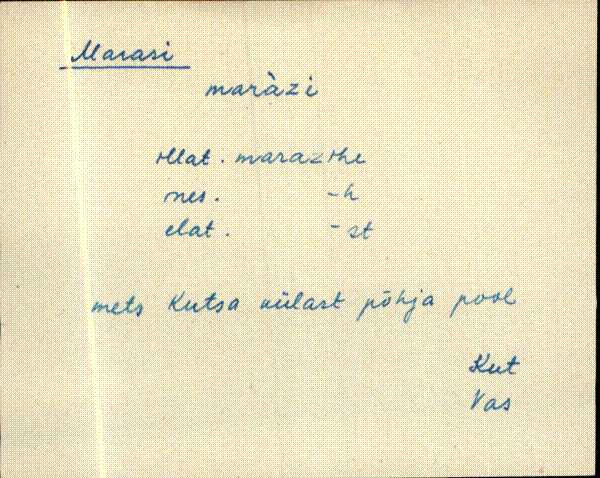 Marasi
maràzi
illat. marazihe
ines. -h
elat. -st
mets Kutsa külast põhja pool
Kut
Vas